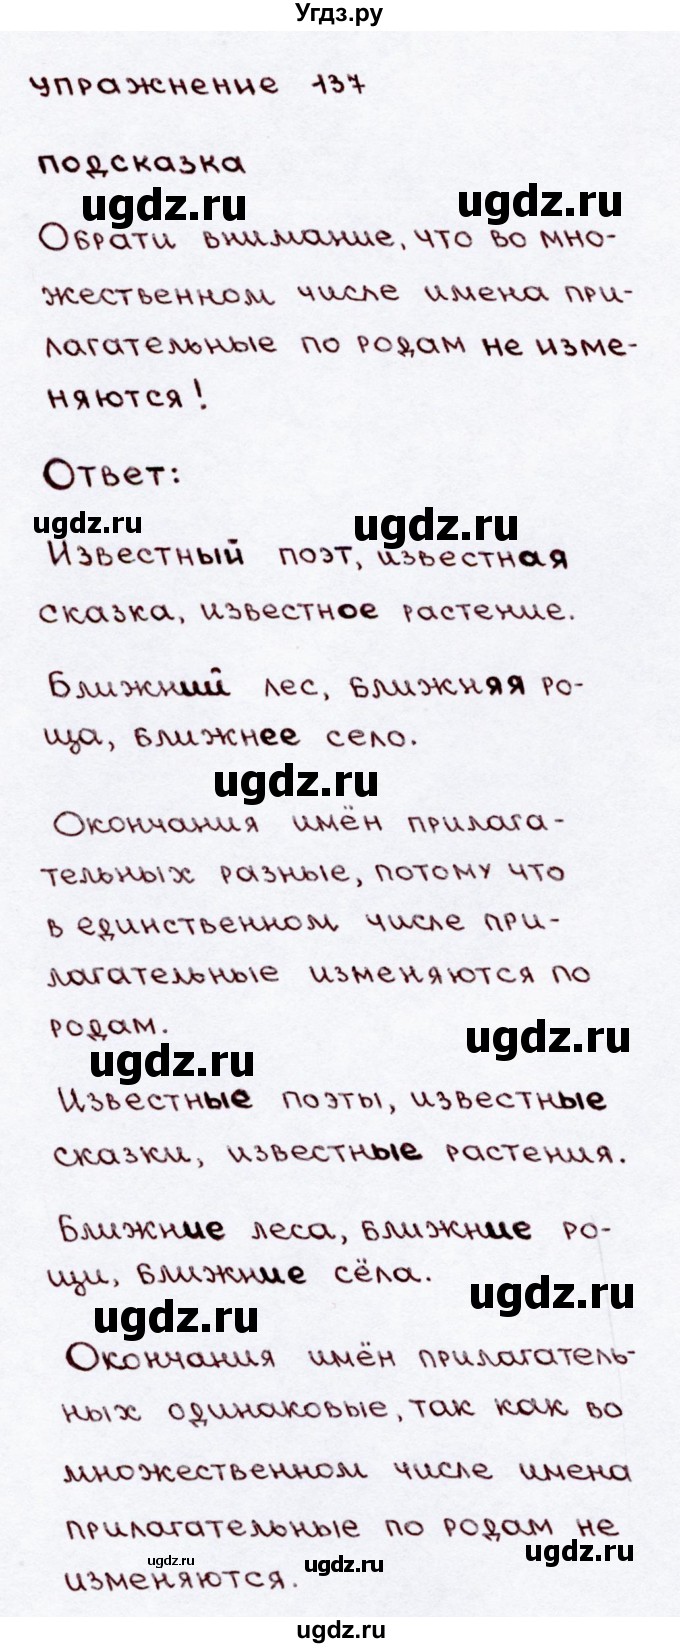 Угдз.ру
упражнение 137
подсказка
ugdz.ru ugdz.ru
Обрати внимание, что во мно-
жественном числе имена при-
лагательные по родам не изме-
няются!
Ответ:
ugdz.ru ugdz.ru
Известный поэт, известная
сказка, известное растение.
Ближний лес, ближняя ро-
ща, ближнее село.
ugdz.ru
Окончания имён прилага-
тельных разные, потому что
в единственном числе при-
лагательные изменяются по
родам.
ugdz.ru ugdz.ru
Известные поэты, известные
сказки, известные растения.
Ближние леса, ближние ро-
щи, ближние сёла.
ugdz.ru ugdz.ru
Окончания имён прилагатель-
ных одинаковые, так как во
множественном числе имена
прилагательные по родам не
ugdz.ru ugdz.ru ugdz.ru
изменяются.
ugdz.ru